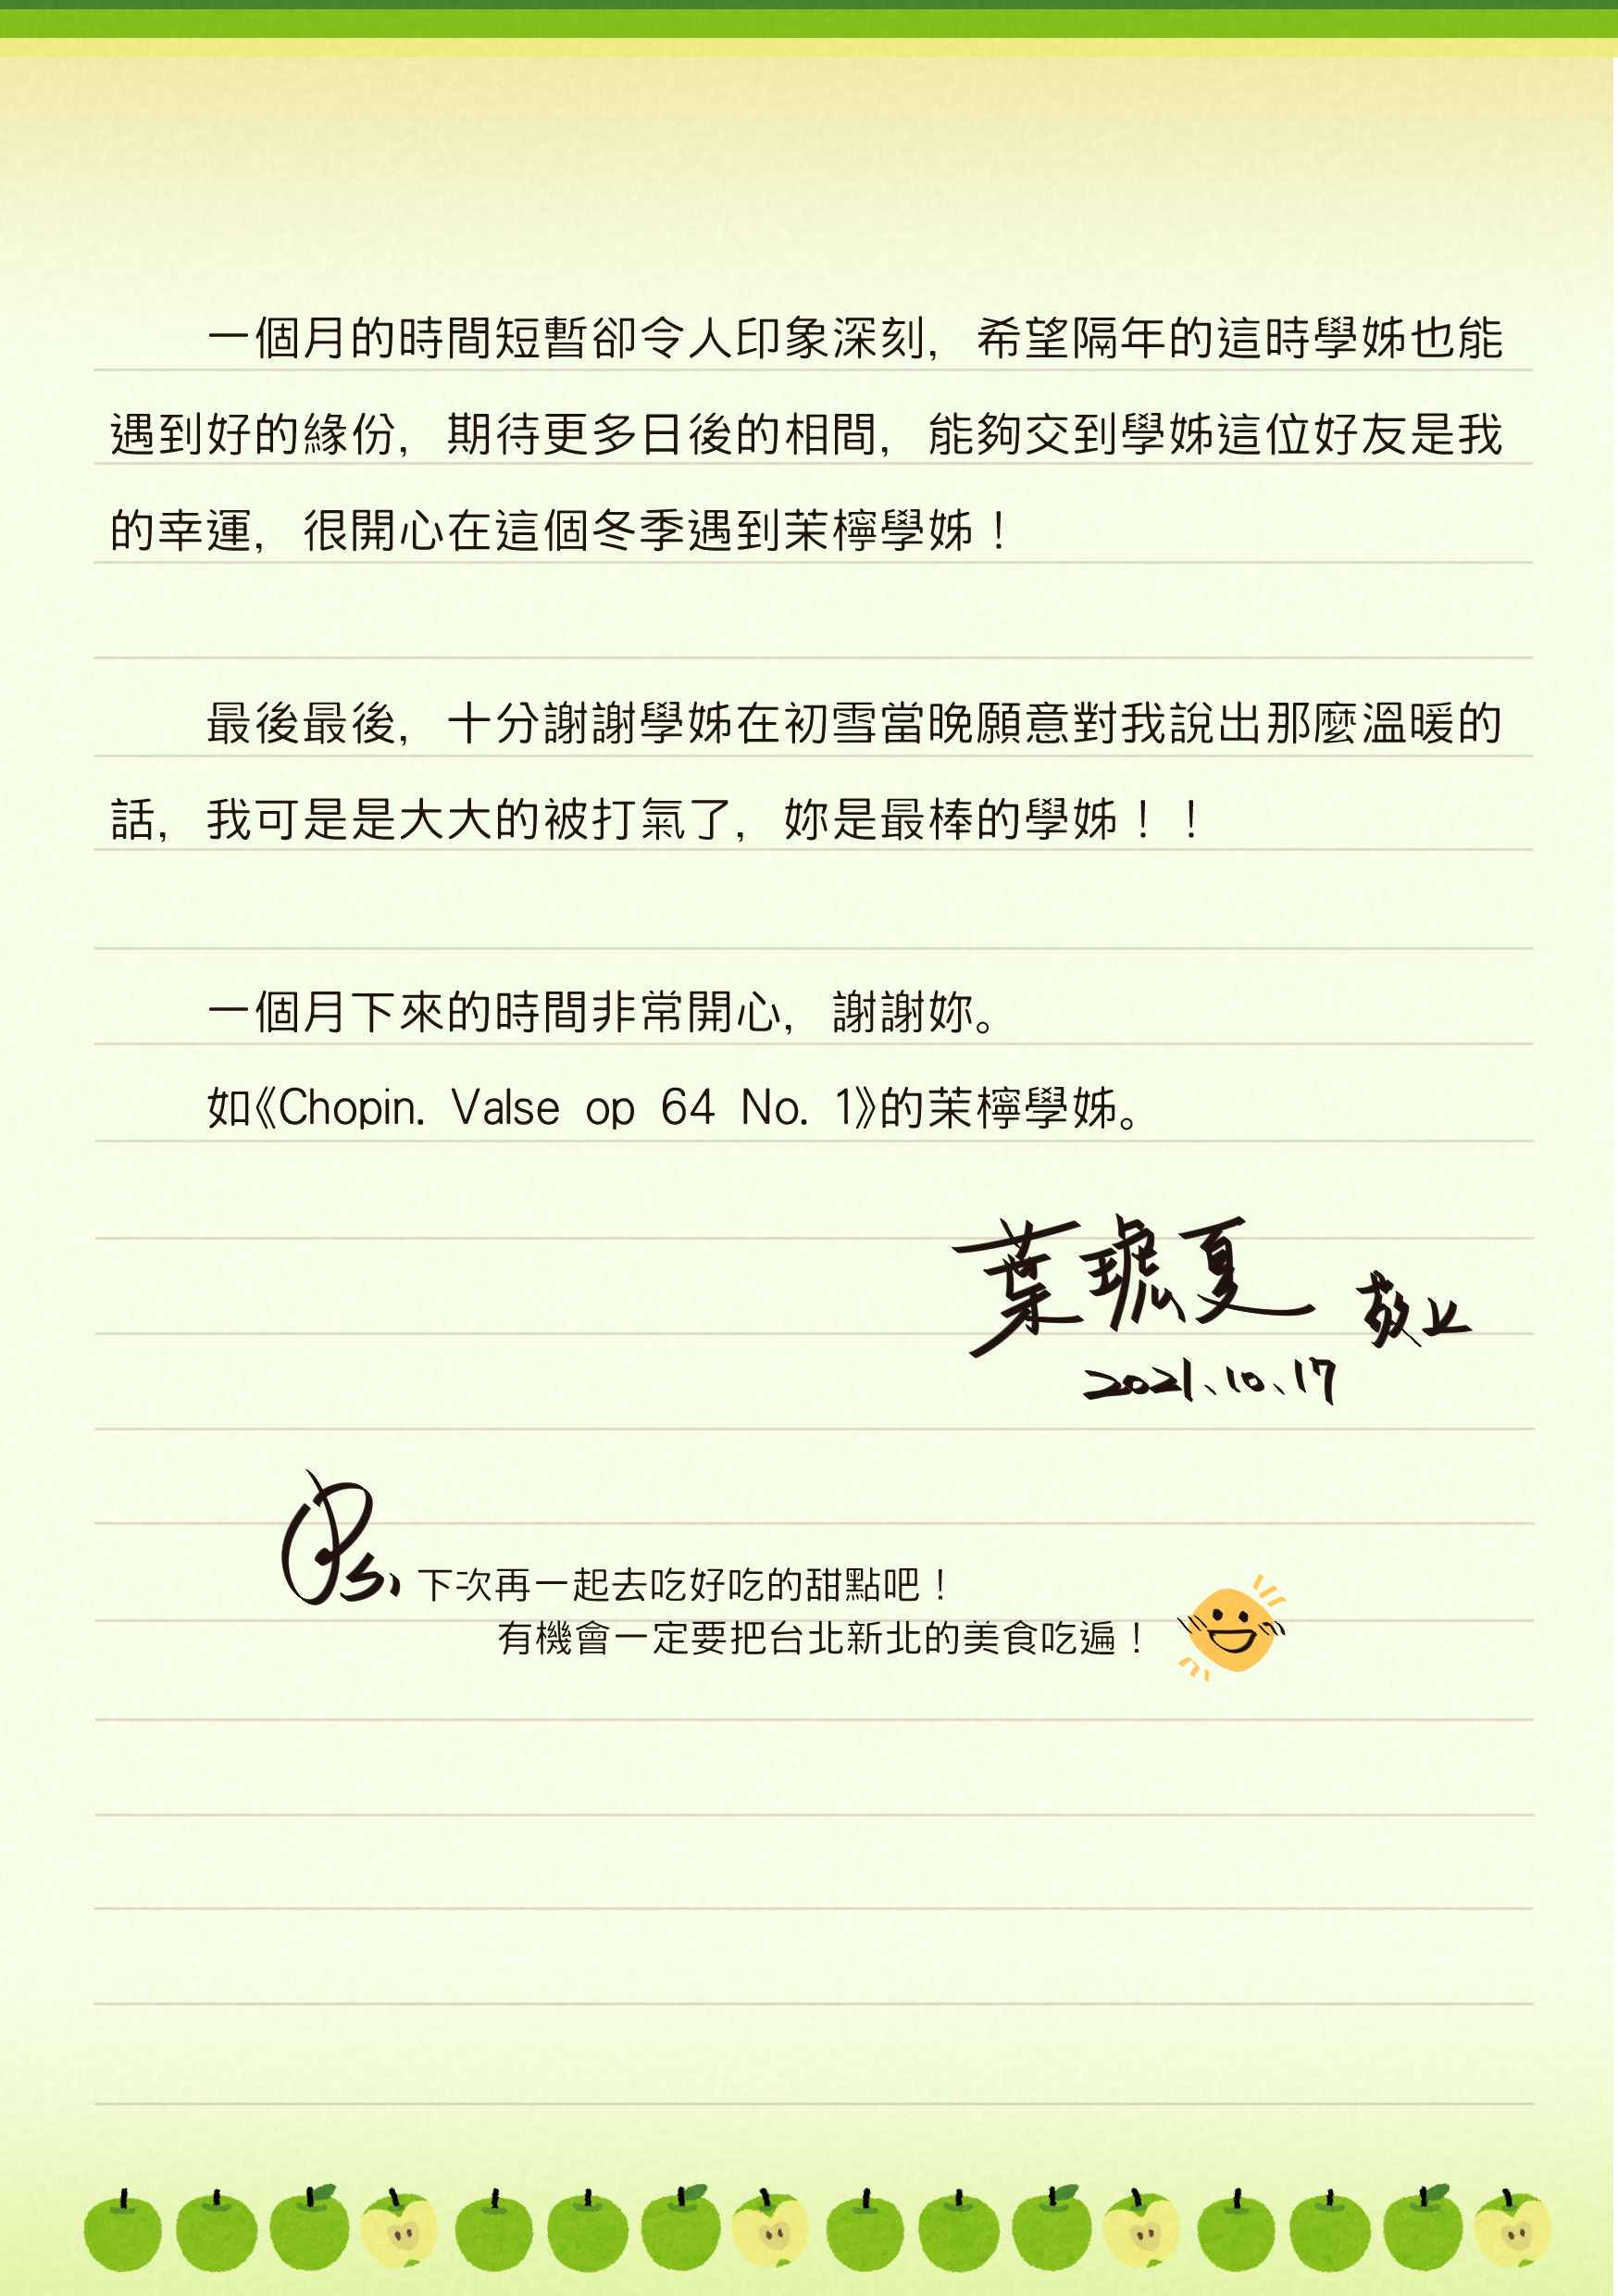 一個月的時間短暫卻令人印象深刻，希望隔年的這時學姊也能
遇到好的緣份，期待更多日後的相間，能夠交到學姊這位好友是我
的幸運，很開心在這個冬季遇到茉檸學姊！
最後最後，十分謝謝學姊在初雪當晚願意對我說出那麼溫暖的
話，我可是是大大的被打氣了，妳是最棒的學姊！！
一個月下來的時間非常開心，謝謝妳。
如《Chopin. Valse op 64 No. 1》的茉檸學姊。
葉琥夏 敬上
2021、10、17
Ps、下次再一起去吃好吃的甜點吧！
有機會一定要把台北新北的美食吃遍！